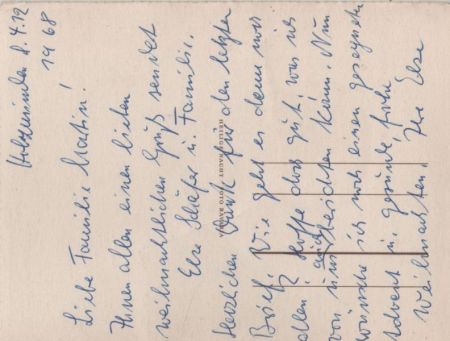 Holzminden d. 4.12
1968
Liebe Familie Martin!
Ihnen allen einen lieben
weihnachtlichen Gruß sendet
Else Schäfer u. Familie.
Herzlichen Dank für den letzten
Brief. Wie geht es denn nur
allen? Hoffe doch gut, was ich
von uns auch berichten kann. Nun
wünsche ich noch einen gesegneten
Advent u. gesunde, frohe
Weihnachten. Ihre Else
HEILIGE NACHT FOTO